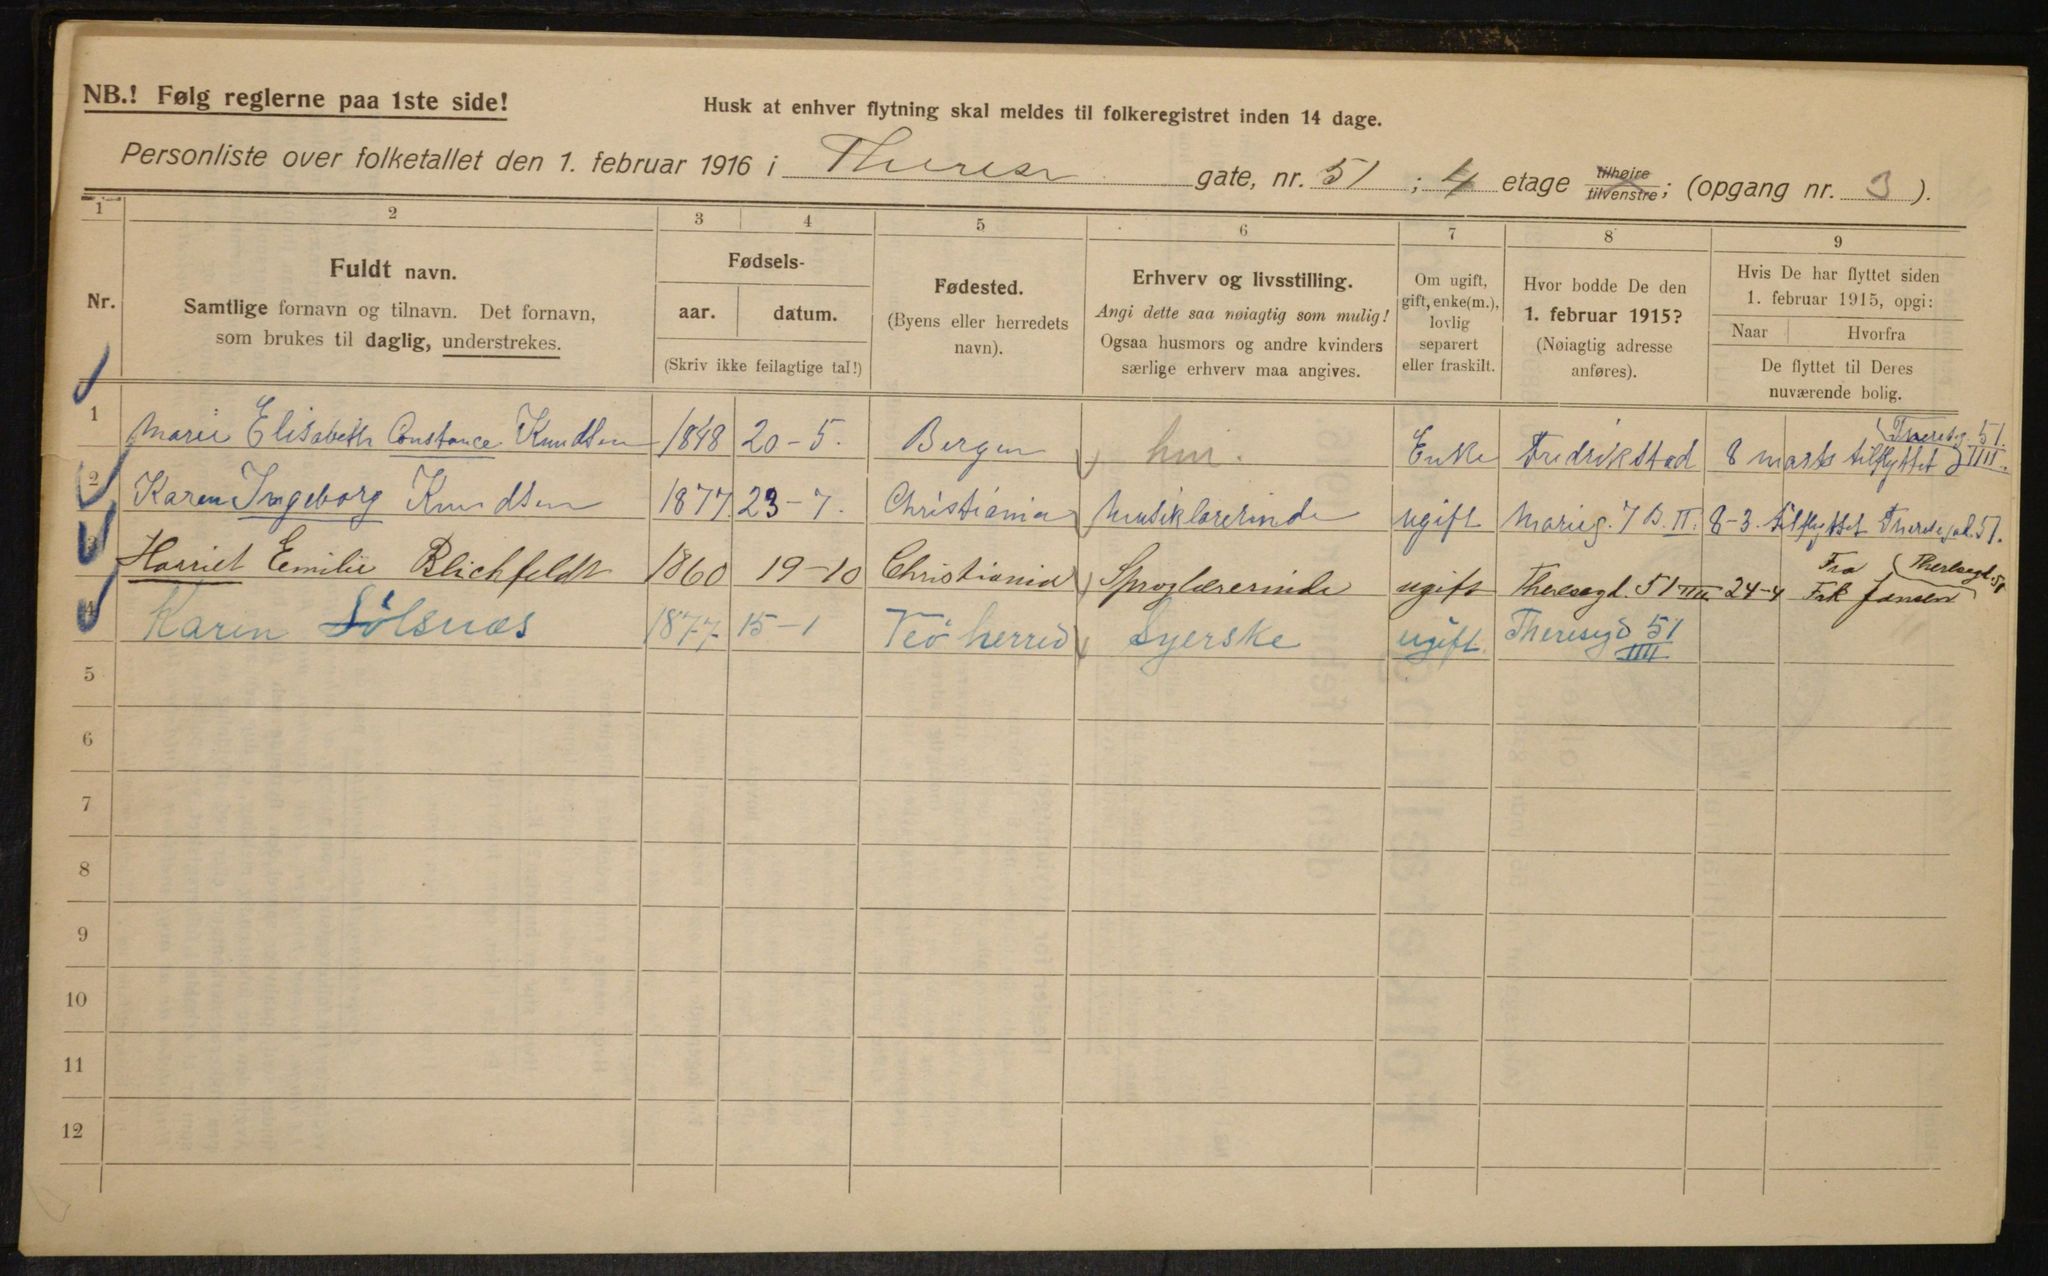 NB.! Følg reglerne paa 1ste side!
Husk at enhver flytning skal meldes til folkeregistret inden 14 dage.
Personliste over folketallet den 1. februar 1916 i Theresr gate, nr. 51 ; 4 etage tilhøire tilvenstre; (opgang nr. 3 ).
1 2 3 4 5 6 7 8 9
Nr.
Fuldt navn.
Samtlige fornavn og tilnavn. Det fornavn,
som brukes til daglig, understrekes.
Fødsels-
aar. datum.
(Skriv ikke feilagtige tal!)
Fødested.
(Byens eller herredets
navn).
Erhverv og livsstilling.
Angi dette saa nøiagtig som mulig!
Ogsaa husmors og andre kvinders
særlige erhverv maa angives.
Om ugift,
gift, enke(m.),
lovlig
separert
eller fraskilt.
Hvor bodde De den
1. februar 1915?
(Nøiagtig adresse
anføres).
Hvis De har flyttet siden
1. februar 1915, opgi:
Naar Hvorfra
De flyttet til Deres
nuværende bolig.
1 Marie Elisabeth Constance Knudsen 1848 20-5. Bergen hm. Enke Fredrikstad 8 marts tilflyttet Theresg. 51 IIII.
2 Karen Ingeborg Knudsen 1877 23-7. Christiania Musiklærerinde ugift Marieg. 7 B. II. 8-3. tilflyttet Theresegd. 51.
3 Harriet Emilie Blichfeldt 1860 19-10 Christiania Sproglærerinde ugift Theresegd. 51 IIII 24-4 Fra Frk Jansen Theresegd. 51
4 Karen Sølsnæs 1877 15-1 Veö herred Syerske ugift. Theresegd 51 IIII
5
6
7
8
9
10
11
12